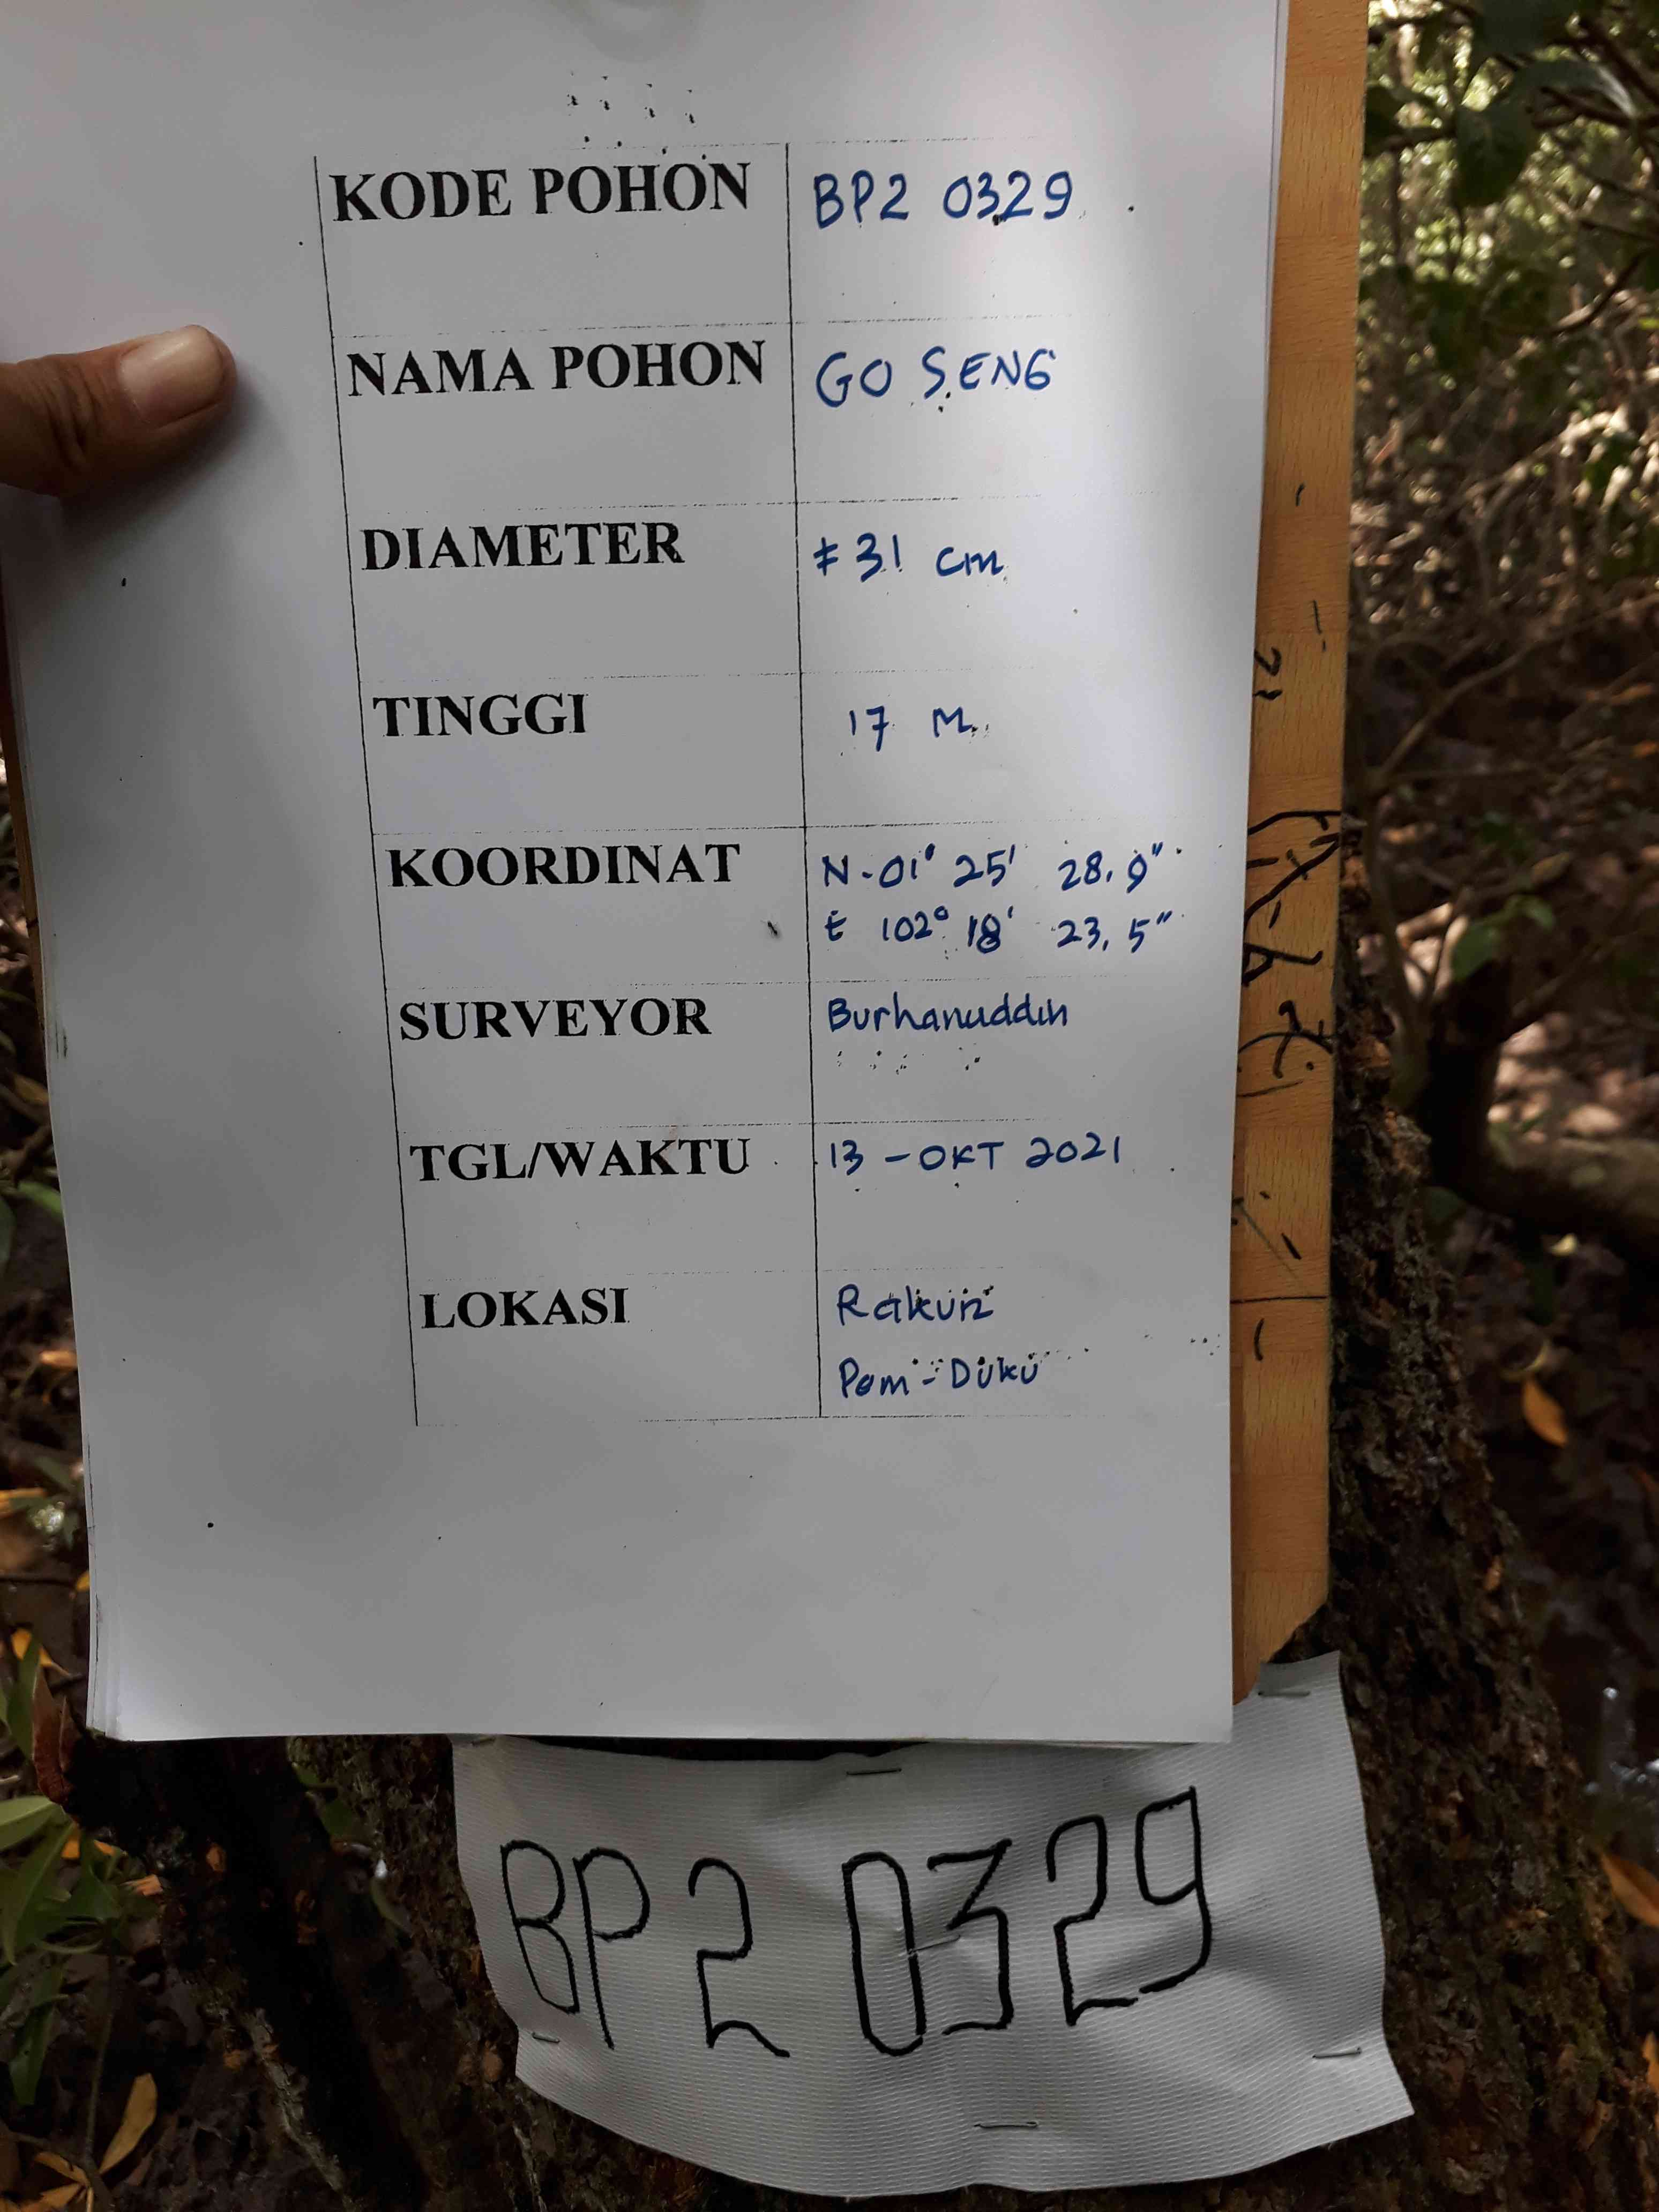 KODE POHON BP2 0329
NAMA POHON GO SENG
DIAMETER ± 31 cm
TINGGI 17 M
KOORDINAT N-01° 25' 28,9"
E 102° 18' 23,5"
SURVEYOR Burhanuddin
TGL/WAKTU 13 - OKT 2021
LOKASI
Pem-Duku
BP2 0329